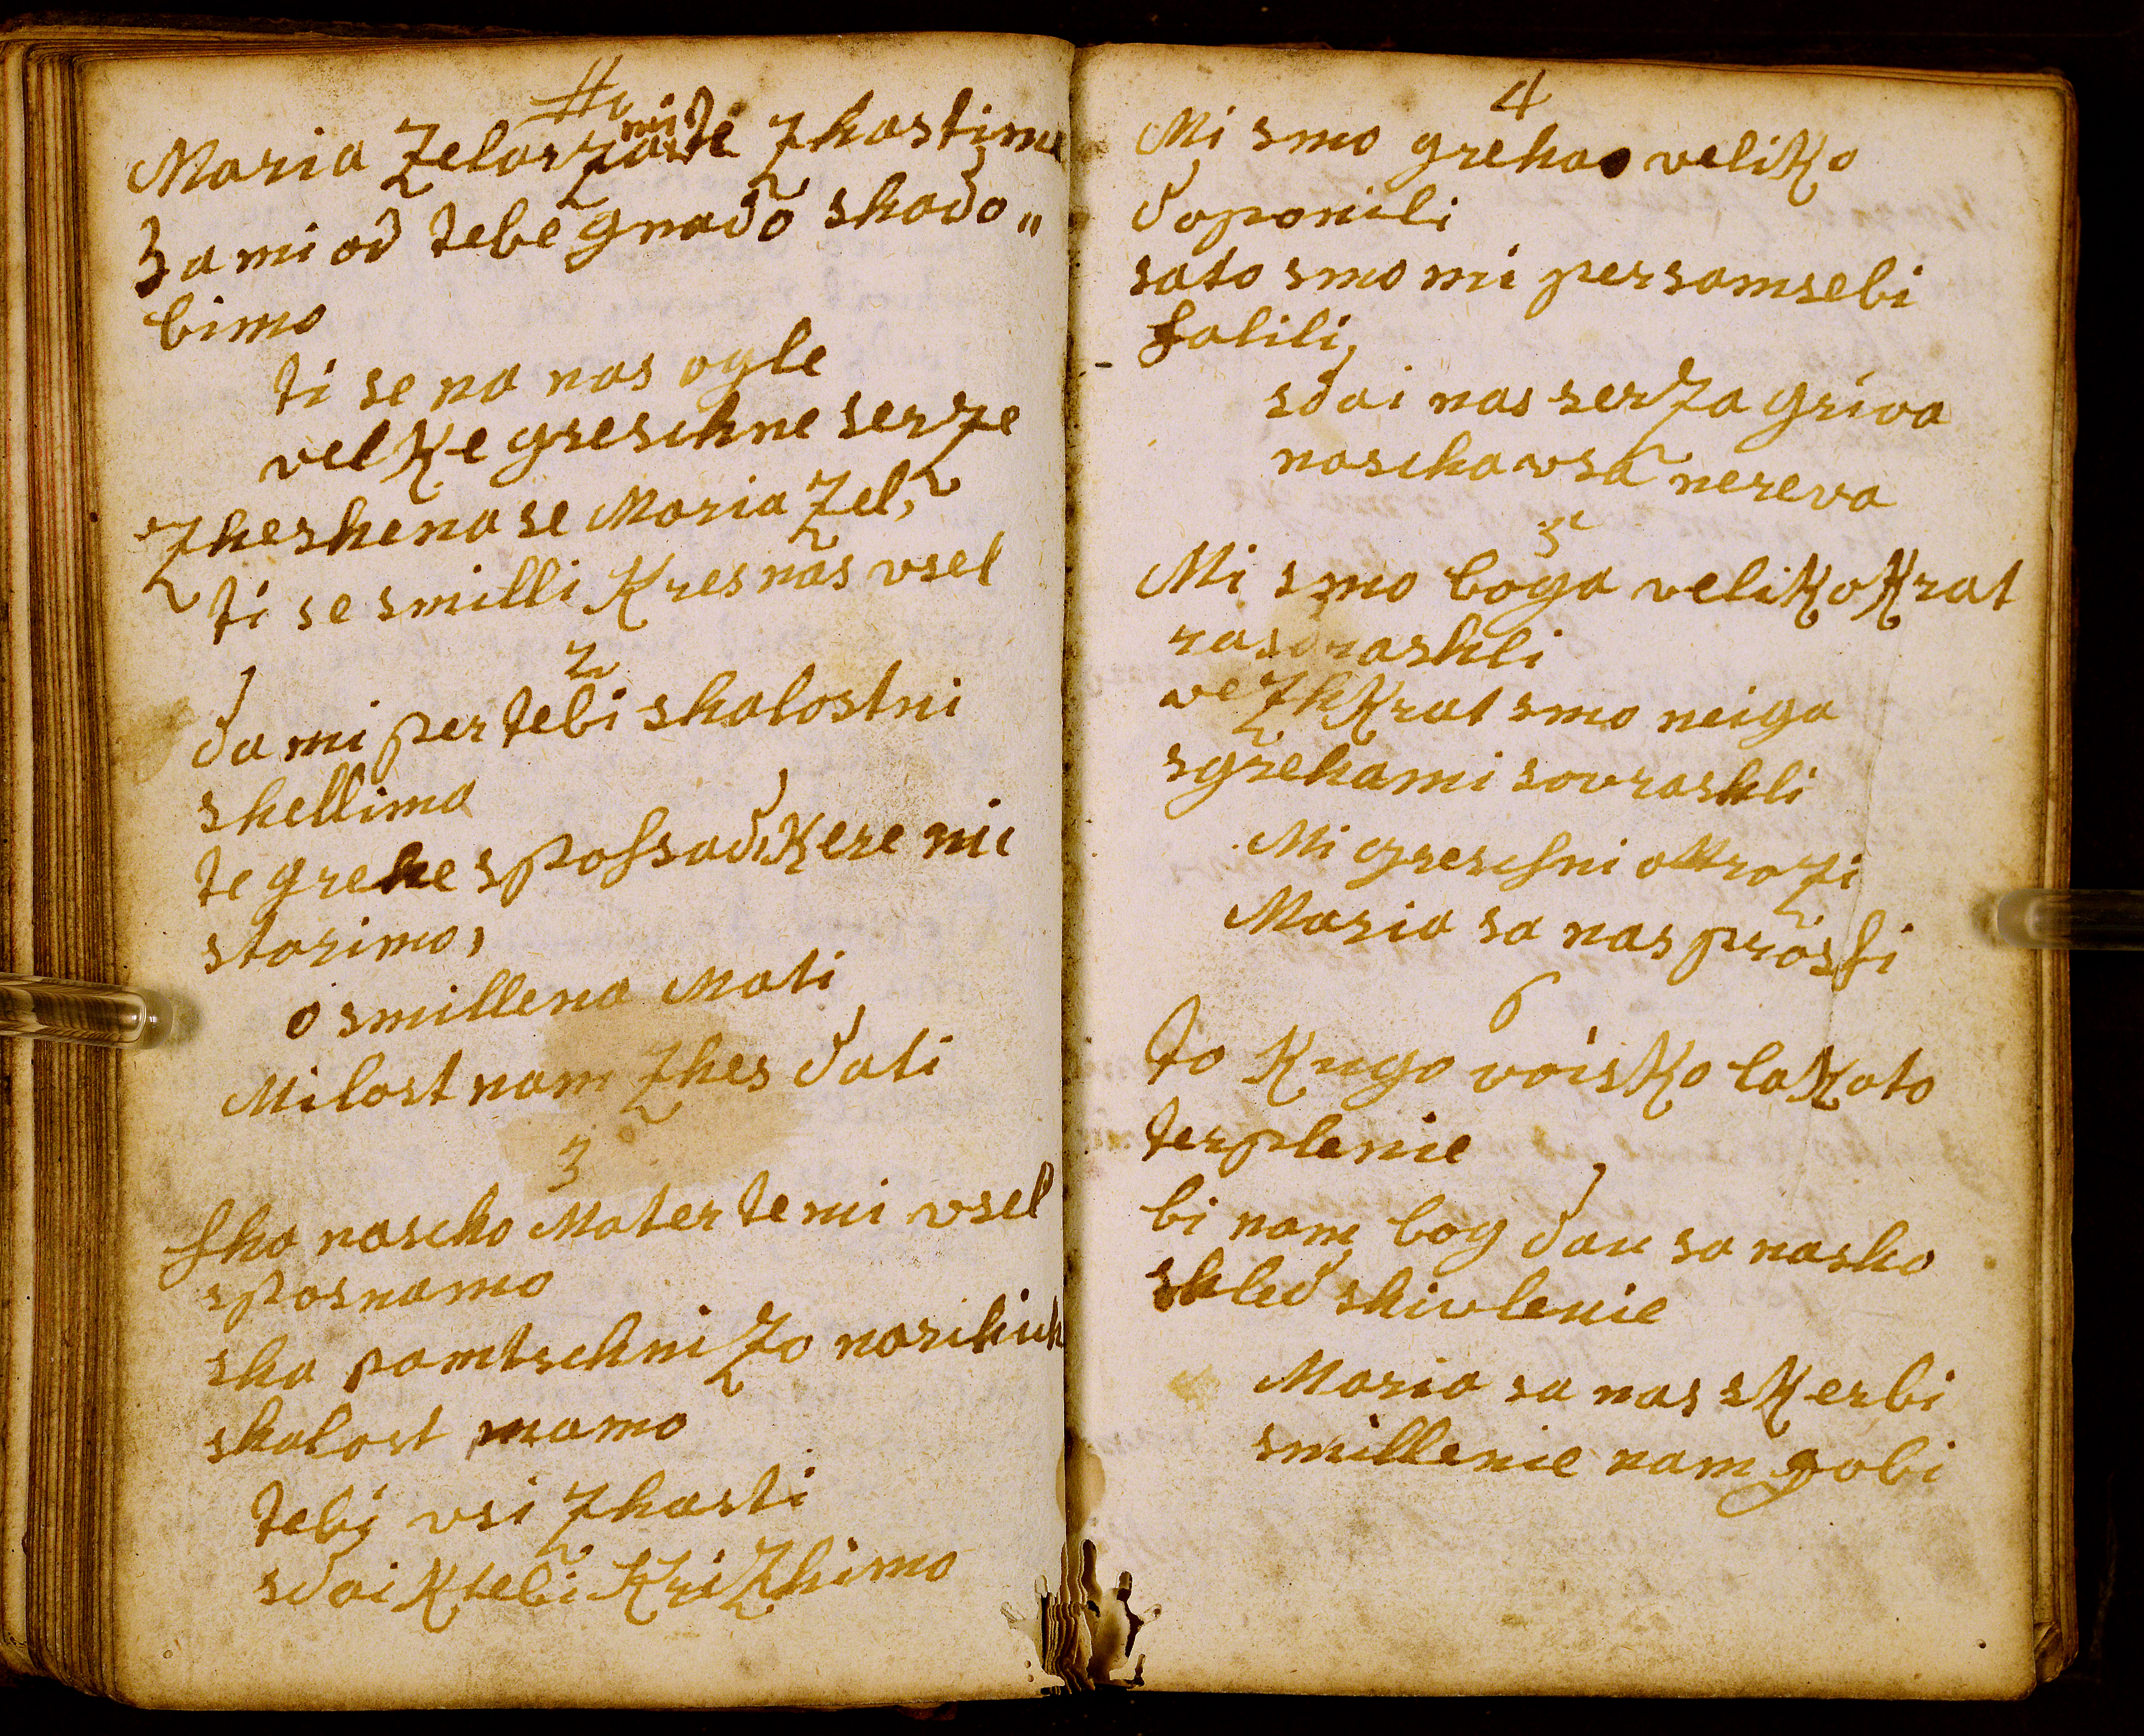 Maria Zelarza mi te zhastimo
Da mi od tebe gnado skado„
bimo
ti se na nas ogle
velke greschne serze
zheshena se Maria Zel,
ti se smilli Kres nas vsel
2
da mi per tebi shalostni
shellimo
te grehe spossad, Kere mi
storimo,
o smillena Mati
Milost nam zhes dati
3
sha nascho Mater te mi vsel
sposnamo
ska pomtschnizo naschich
shalost mamo
tebi vsi zhasti
sdai Ktebi Krizhimo
4
Mi smo greha veliko
doponili
sato smo mi per sam sebi
falili,
sdai nas serza griva
nascha vsa nereva
5
Mi smo boga velikokrat
rasdrashli
vezhkrat smo neiga
sgrehami sovrashli
Mi greschni otrozi
Maria sa nas prossi
6
to Kugo voisko lakoto
terplenie
bi nam bog dau sa nasho
shled shivlenie
Maria sa nas skerbi
smillenie nam gobi